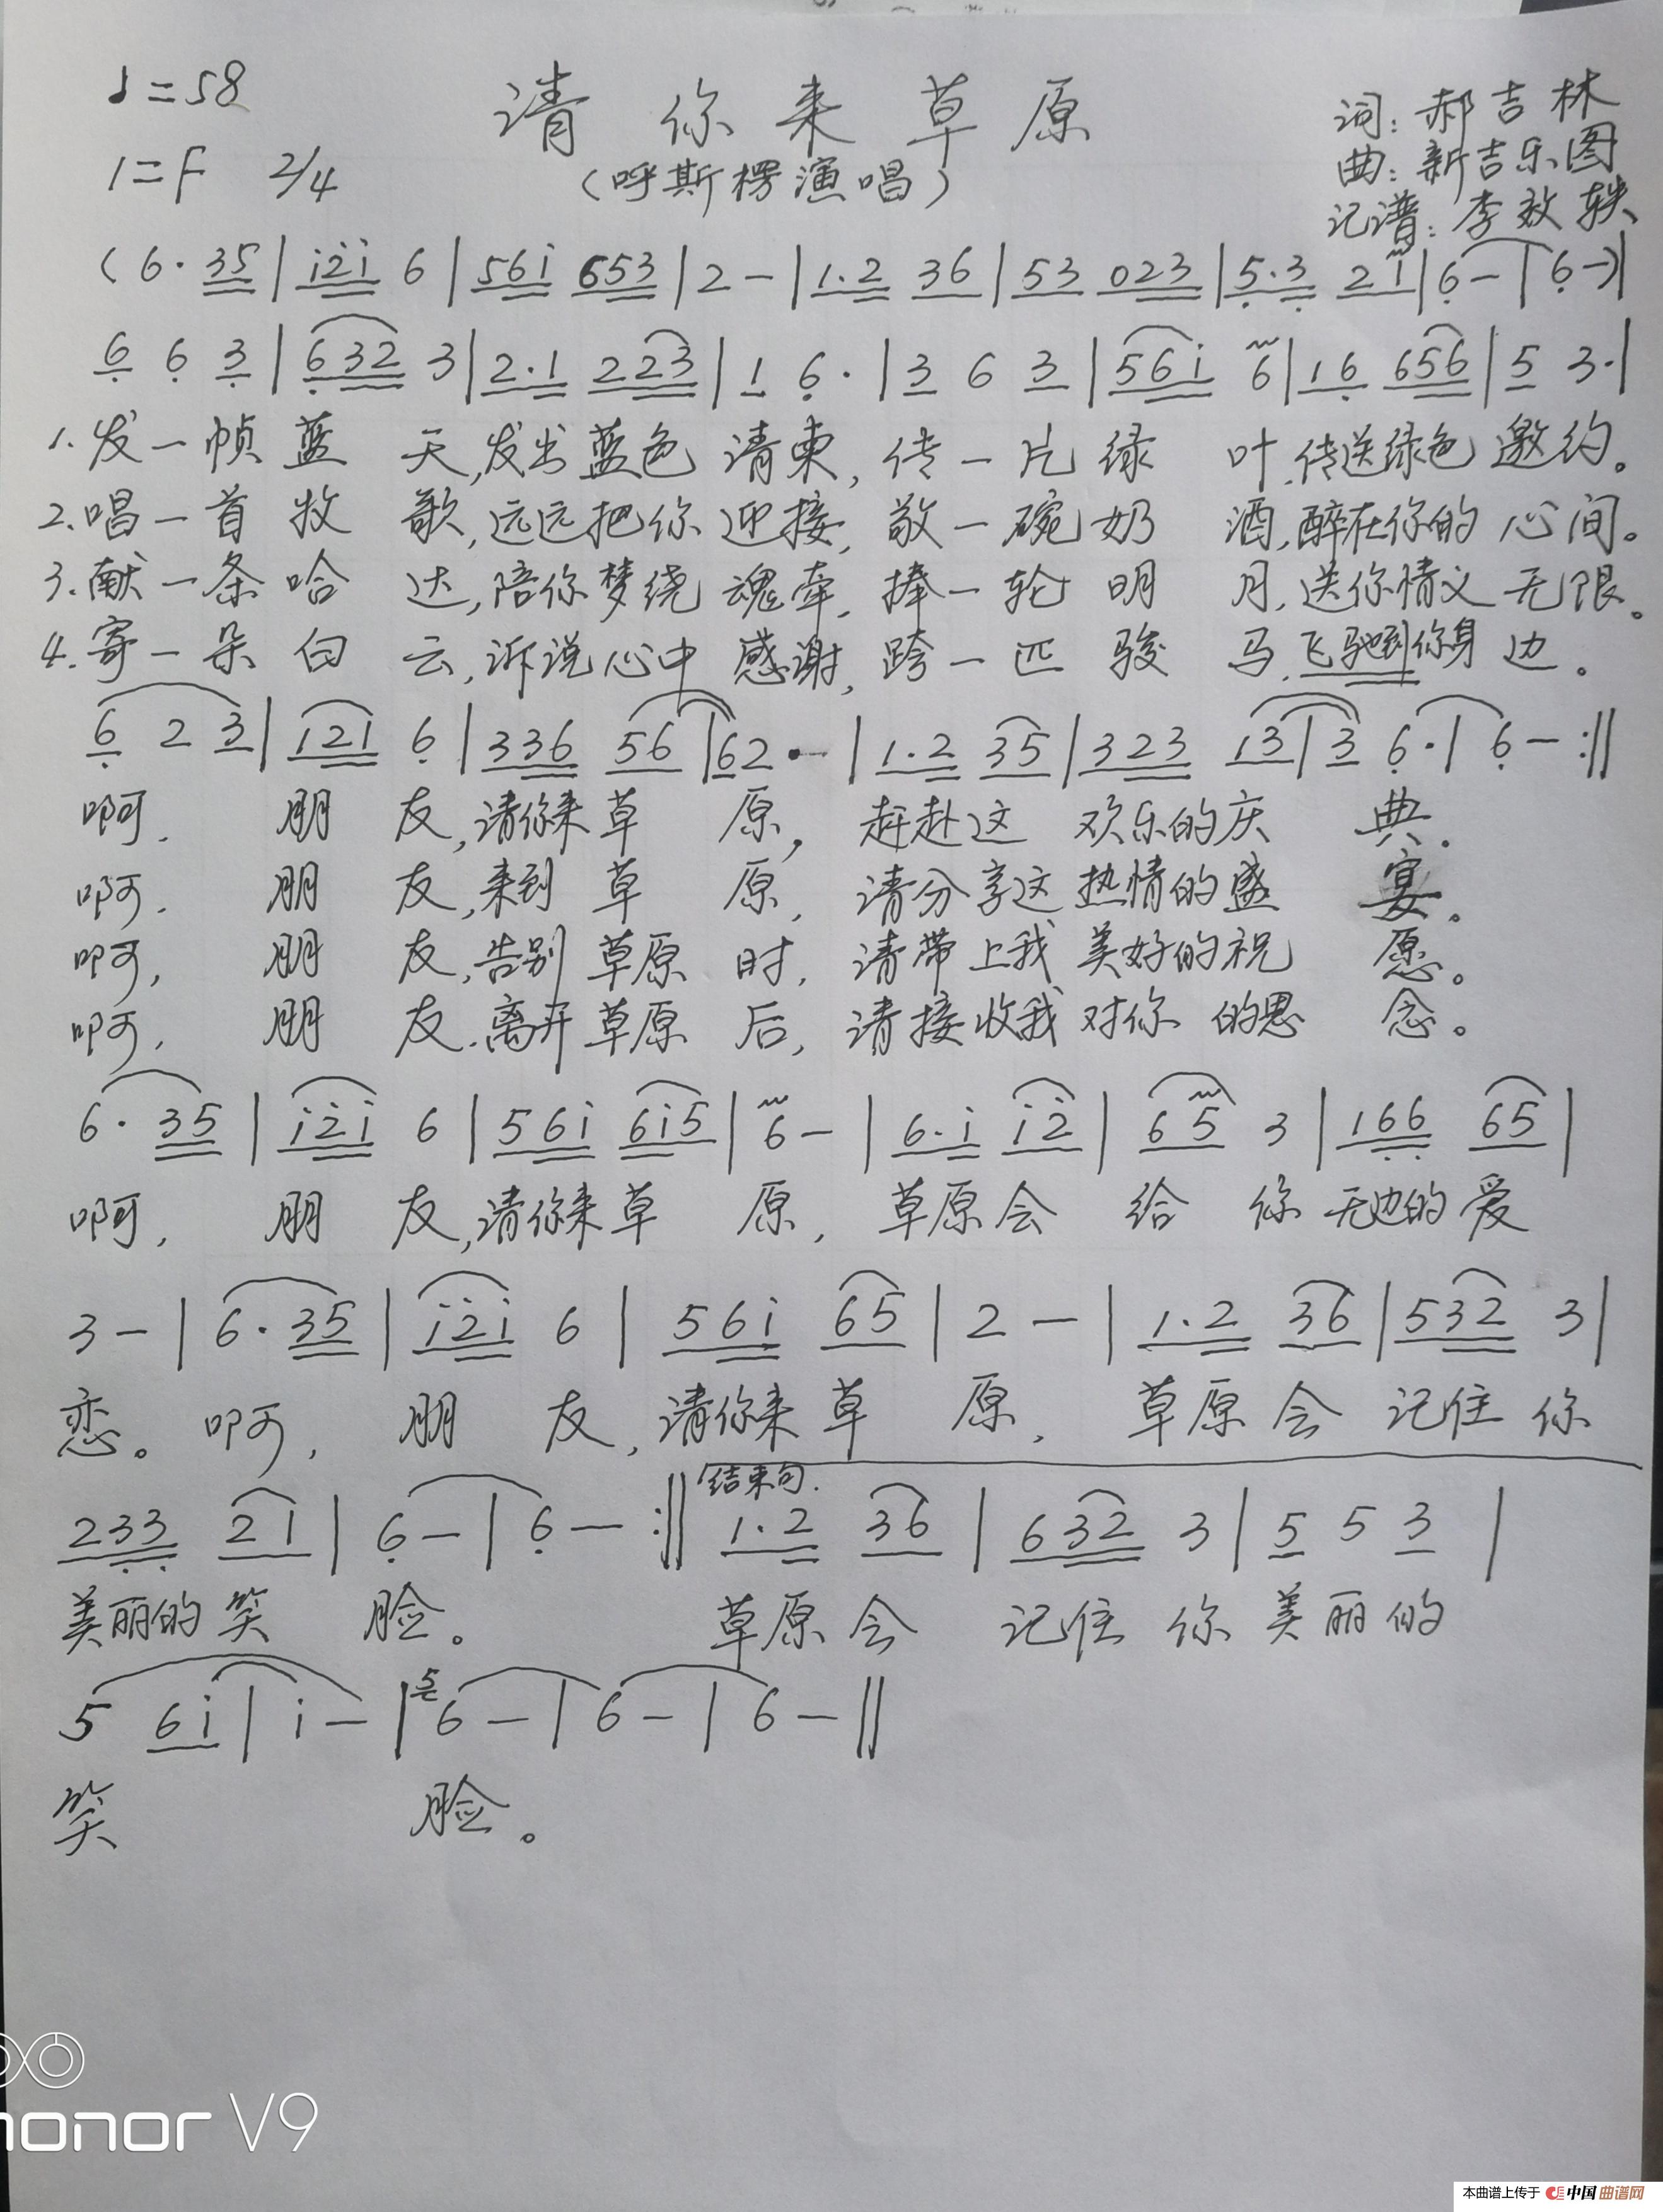 ♩=58
请你来草原
词：郝吉林
1=F 2/4
(呼斯楞演唱)
曲：新吉乐图
记谱：李效轶
(6·35|i2i 6|56i 653|2-|1.2 36|53 023|5.3 21|6-|6-)|
6 6 3|632 3|2.1 223|1 6·|3 6 3|56i 6|16 656|5 3·|
1.发一帧蓝天,发出蓝色请柬,传一片绿叶,传送绿色邀约。
2.唱一首牧歌,远远把你迎接,敬一碗奶酒,醉在你的心间。
3.献一条哈达,陪你梦绕魂牵,捧一轮明月,送你情义无限。
4.寄一朵白云,诉说心中感谢,跨一匹骏马,飞驰到你身边。
6 2 3|121 6|336 56|62·-|1.2 35|323 13|3 6·|6-:||
啊,朋友,请你来草原,赶赴这欢乐的庆典.
啊,朋友,来到草原,请分享这热情的盛宴。
啊,朋友,告别草原时,请带上我美好的祝愿。
啊,朋友,离开草原后,请接收我对你的思念。
6·35|i2i 6|56i 6i5|6-|6.i i2|65 3|166 65|
啊,朋友,请你来草原,草原会给你无边的爱
3-|6·35|i2i 6|56i 65|2-|1.2 36|532 3|
恋。啊,朋友,请你来草原,草原会记住你
结束句.
233 21|6-|6-:||1.2 36|632 3|5 5 3|
美丽的笑脸。草原会记住你美丽的
5 6i|i-|5 6-|6-|6-||
笑脸。
honor V9
本曲谱上传于 中国曲谱网